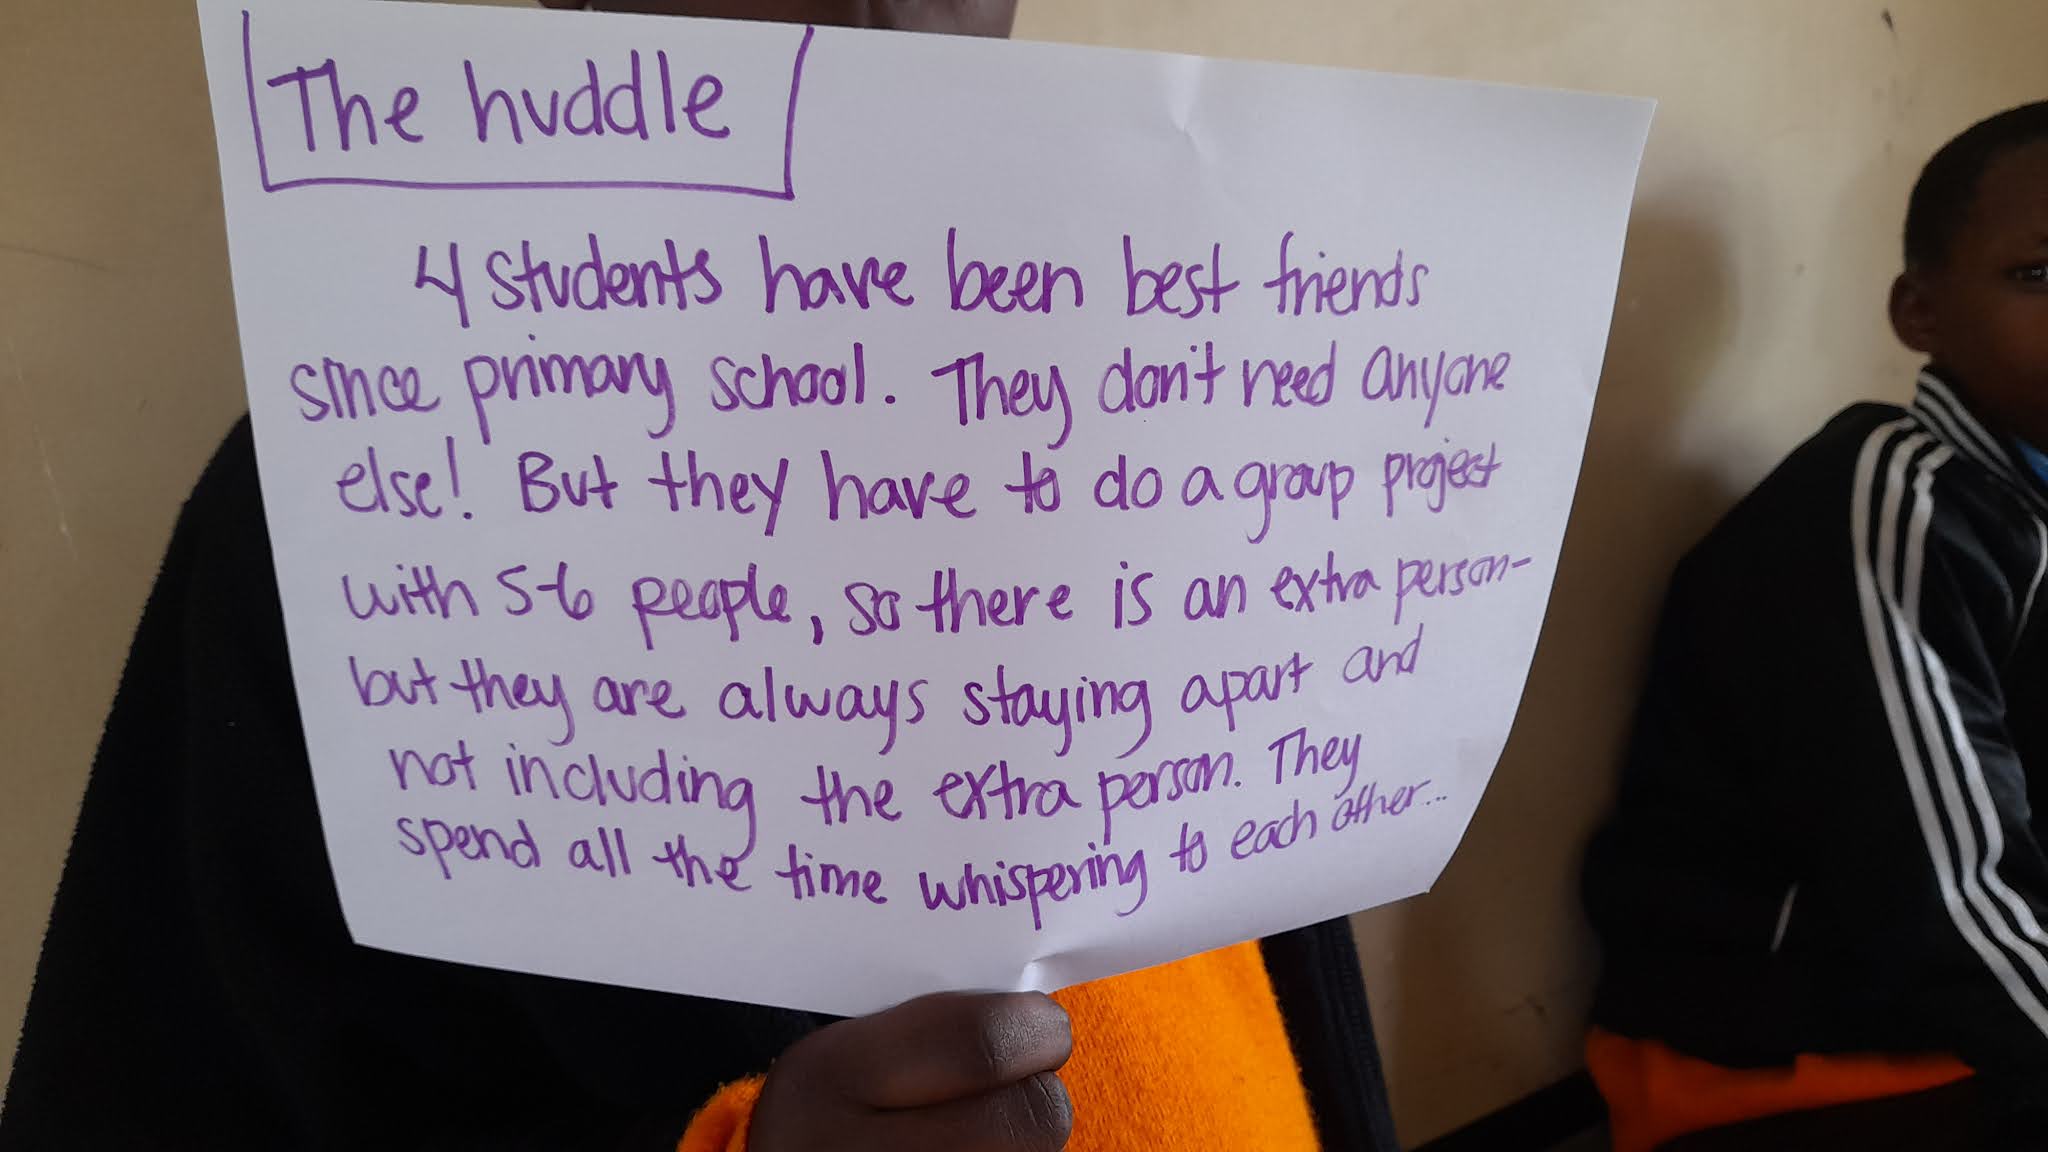 The huddle
4 students have been best friends
since primary school. They don't need anyone
else! But they have to do a group project
with 5-6 people, so there is an extra person-
but they are always staying apart and
not including the extra person. They
spend all the time whispering to each other...